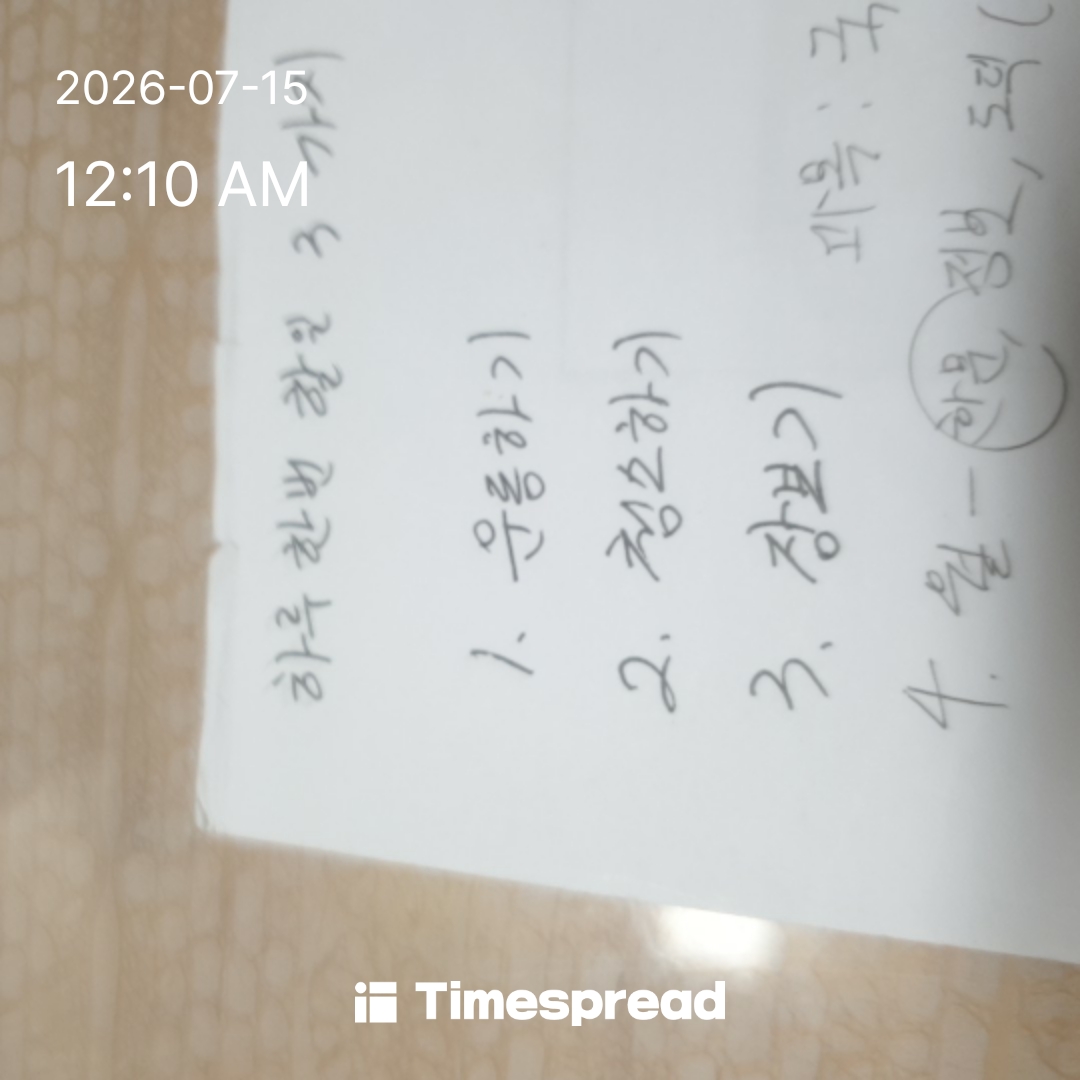 2026-07-15
12:10 AM
하루 한번 할일 3 가지
1. 운동하기
2. 청소하기
3. 장보기
과목: 국
4. 월 - 한문, 정보, 도덕 (
Timespread